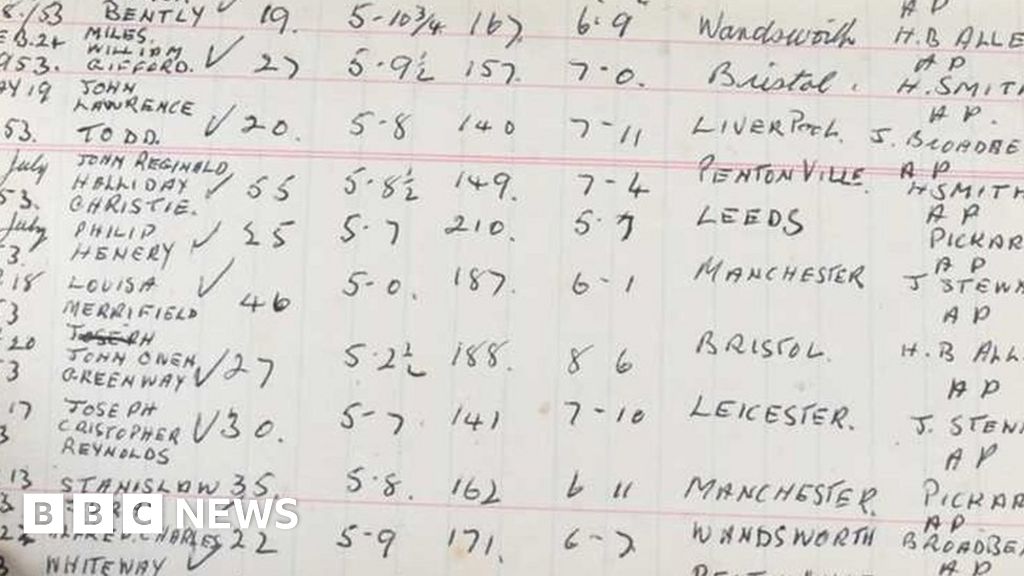 8./53 BENTLY ✓ 19. 5-10 3/4 167. 6-9 Wandsworth A P
MILES. H.B ALLE
WILLIAM
953. GIFFORD. ✓ 27 5-9½ 157. 7-0. Bristol. A P
AY 19 JOHN H. SMITH
LAWRENCE A P.
53. TODD. ✓ 20. 5-8 140 7-11 LIVERPOOL. J. BROADBE
July JOHN REGINALD A P
HALLIDAY ✓ 55 5-8½ 149. 7-4 PENTONVILLE. H SMITH
53. CHRISTIE. A P
July PHILIP 25 5-7 210. 5-7 LEEDS PICKAR
3. HENERY ✓ A P
18 LOUISA ✓ 46 5-0. 187. 6-1 MANCHESTER J STEW
3 MERRIFIELD A P
20 JOSEPH
JOHN OWEN 5-2½ 188. 8 6 BRISTOL. H.B ALL
3 GREENWAY ✓ 27 A P
17 JOSEPH 5-7 141 7-10 LEICESTER. J. STEW
3 CRISTOPHER ✓ 30. A P
REYNOLDS
13 STANISLAW 35 5-8. 162 6 11 MANCHESTER. PICKAR
3 A P
ALFRED. CHARLES 22 5-9 171. 6-7 WANDSWORTH BROADBE
3 WHITEWAY ✓ A P
BBC NEWS